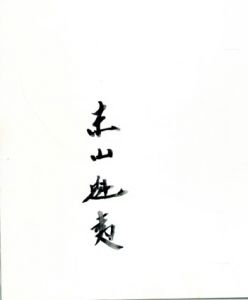 東山魁夷